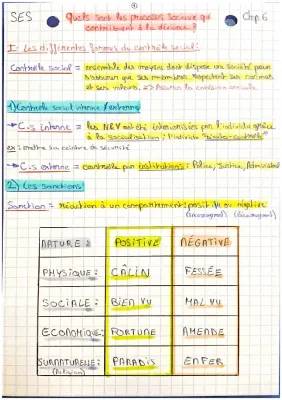 ①
SES
Quels sont les processus sociaux qui contribuent à la déviance ?
Chp. 6
I- Les différentes formes du contrôle social :
Contrôle social = ensemble des moyens dont dispose une société pour
s'assurer que ses membres respectent ses normes
et ses valeurs. => Assurer la cohésion sociale
1) Contrôle social interne / externe
C.s interne = les N&V ont été intériorisées par l'individu grâce
à la socialisation : l'individu "s'auto-contrôle"
ex : mettre sa ceinture de sécurité
C.s externe = contrôle par institutions : Police, Justice, Administrat
2) Les Sanctions
Sanction = réaction à un comportement : positif ou négative
(encouragement) (découragement)
NATURE : POSITIVE NÉGATIVE
PHYSIQUE : CÂLIN FESSÉE
SOCIALE : BIEN VU MAL VU
ECONOMIQUE : FORTUNE AMENDE
SURNATURELLE : PARADIS ENFER
(Religion)